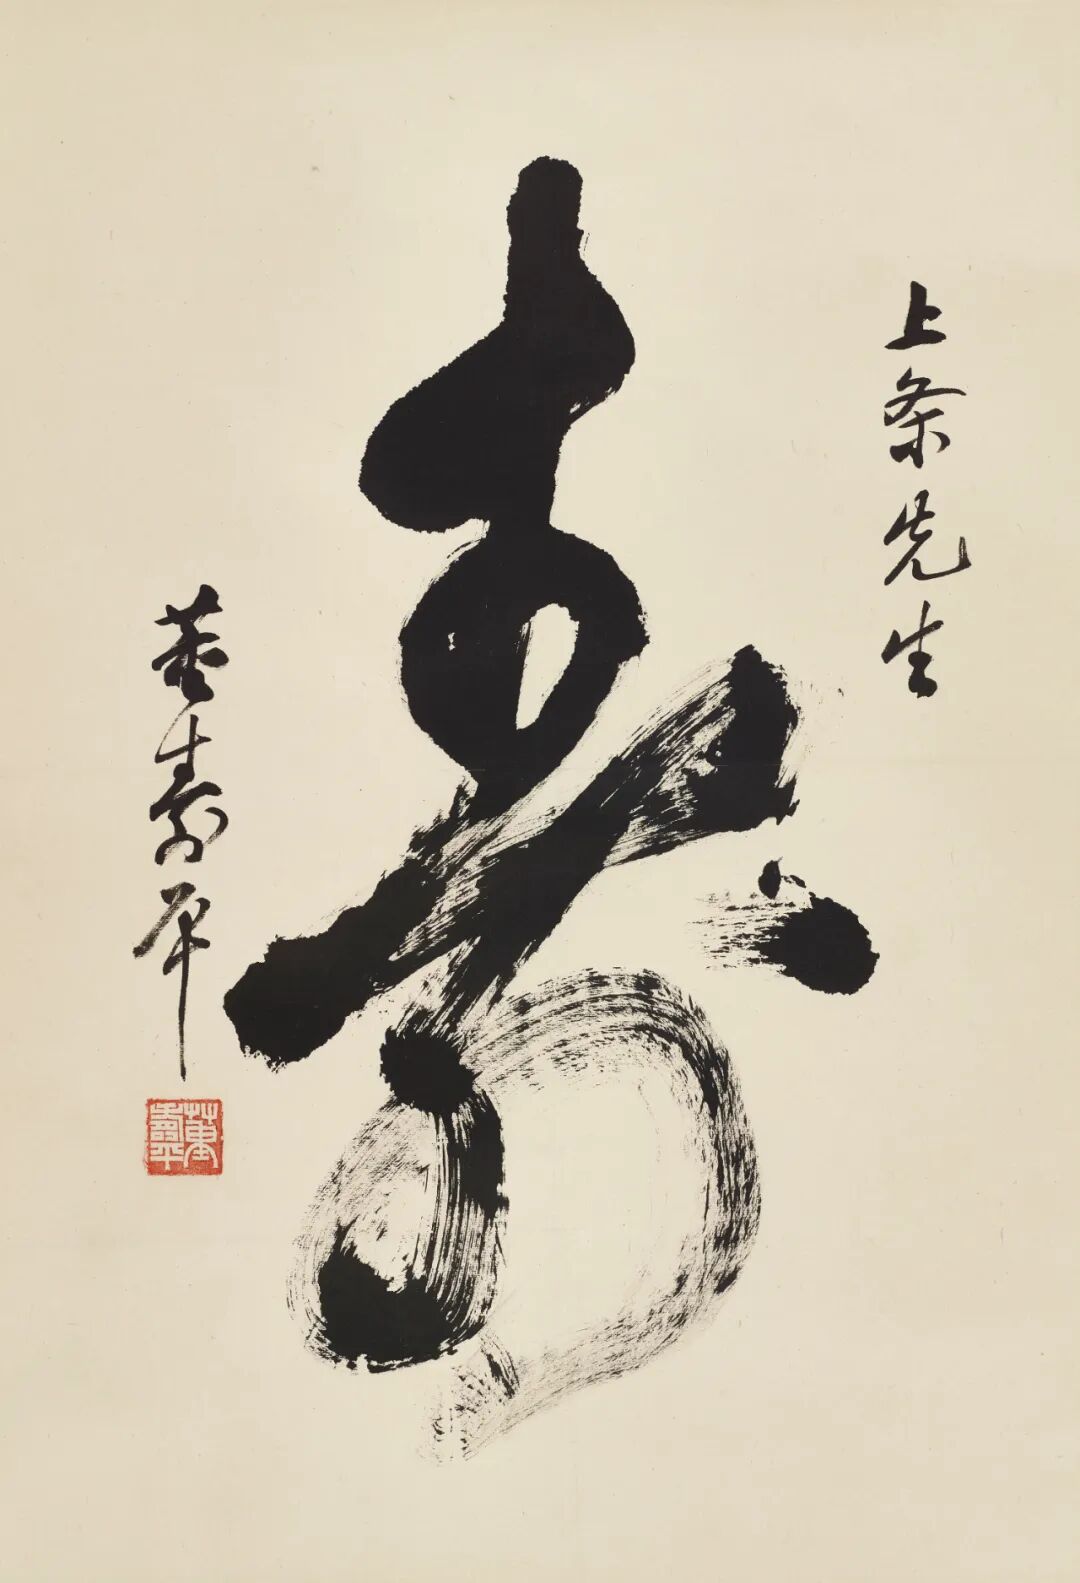 上条先生
寿
董寿平
董壽平